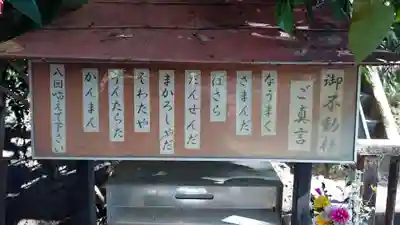 御不動様
ご真言
なうまく
さまんだ
ばさら
だんせんだ
まかろしやだ
そわたや
うんたらた
かんまん
八回唱えて下さい